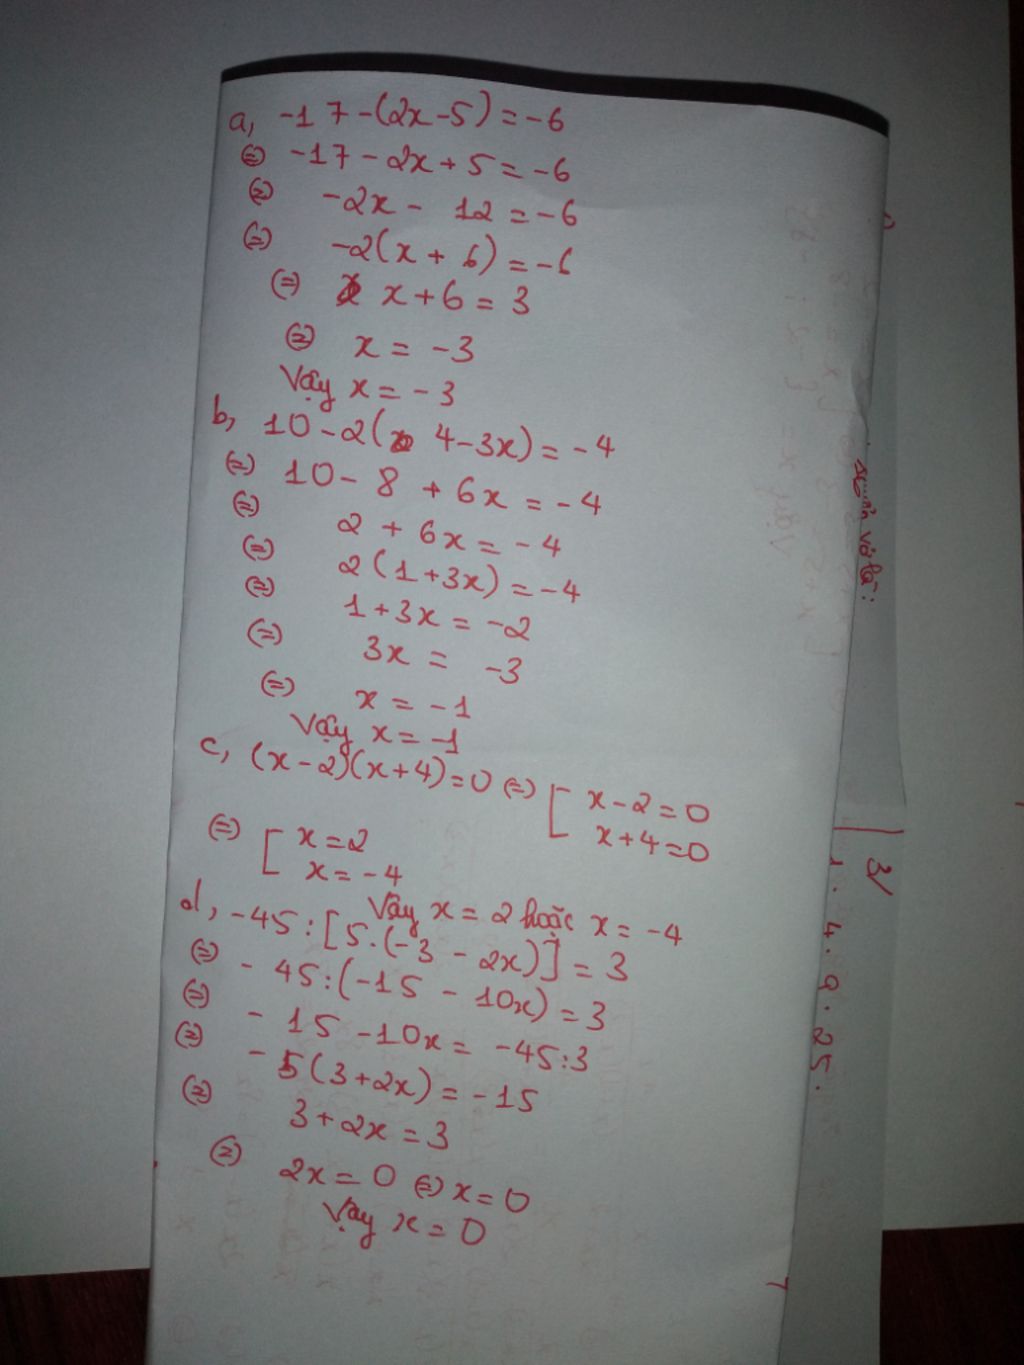 a, -17-(2x-5)=-6
⇔ -17-2x+5=-6
⇔ -2x-12=-6
⇔ -2(x+6)=-6
⇔ x+6=3
⇔ x=-3
Vậy x=-3
b, 10-2(4-3x)=-4
⇔ 10-8+6x=-4
⇔ 2+6x=-4
⇔ 2(1+3x)=-4
⇔ 1+3x=-2
⇔ 3x=-3
⇔ x=-1
Vậy x=-1
c, (x-2)(x+4)=0 ⇔ [ x-2=0
x+4=0
⇔ [ x=2
x=-4
Vậy x=2 hoặc x=-4
d, -45:[5.(-3-2x)]=3
⇔ -45:(-15-10x)=3
⇔ -15-10x=-45:3
⇔ -5(3+2x)=-15
⇔ 3+2x=3
⇔ 2x=0 ⇔ x=0
Vậy x=0
3/
1.4.9.25.